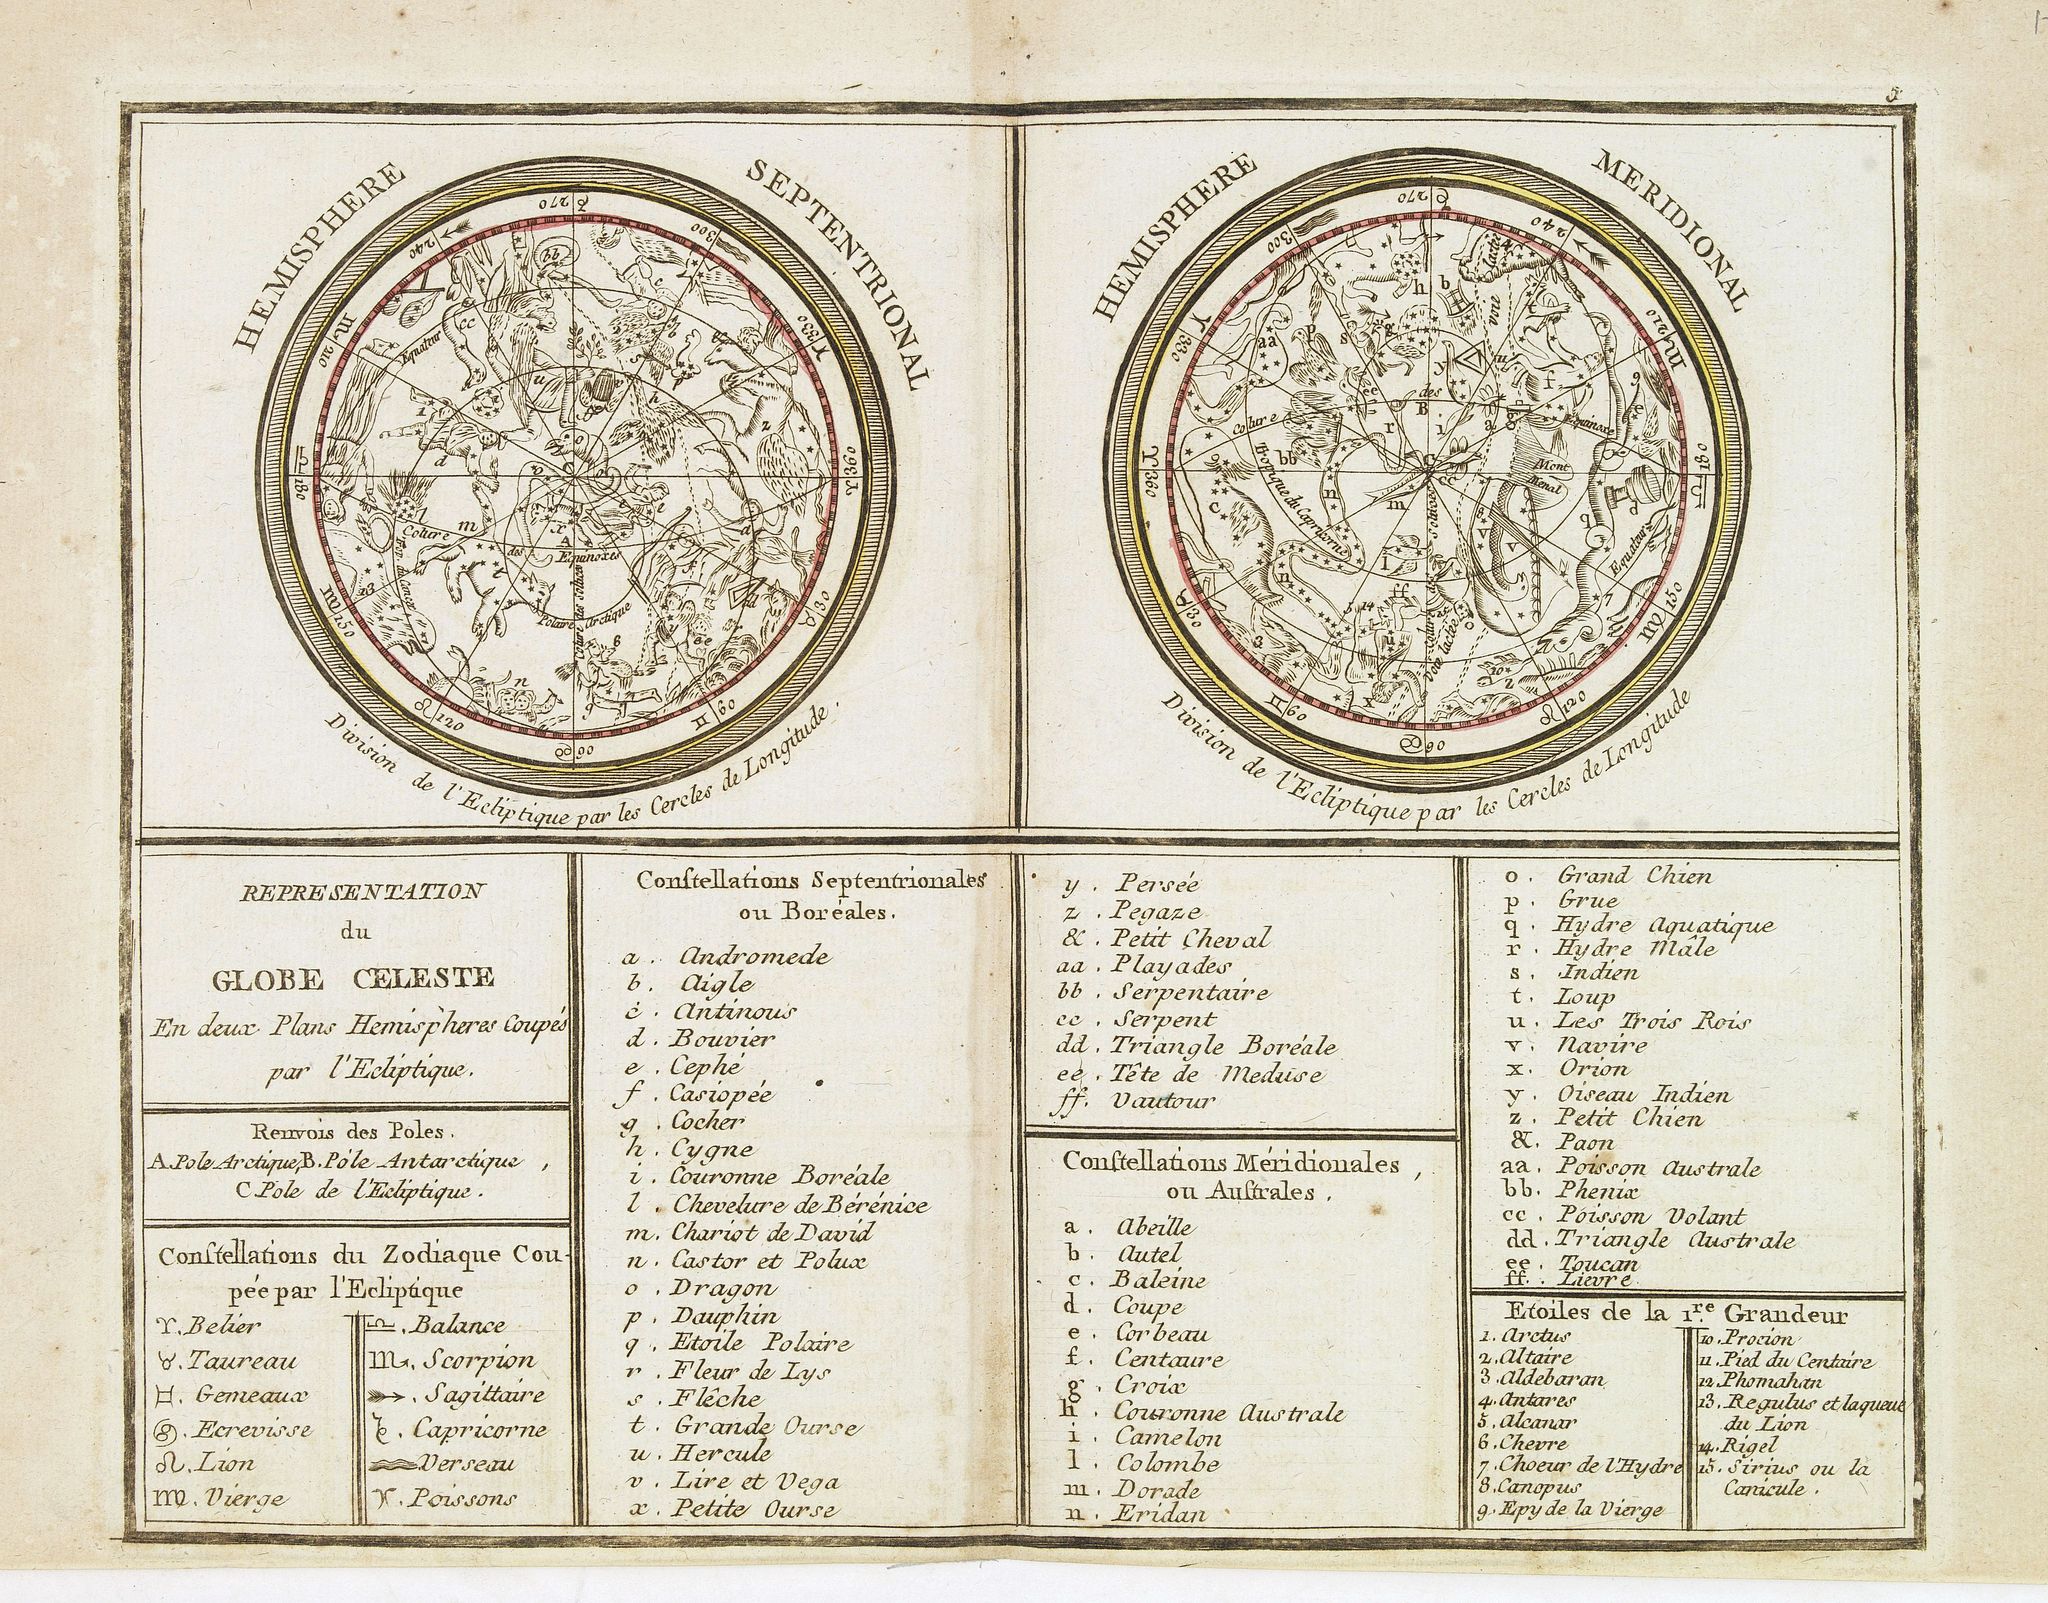 5
HEMISPHERE SEPTENTRIONAL
270
300
330
360
30
60
90
120
150
180
210
240
Equateur
Colure des Equinoxes
Polaire Arctique
Colure des Solstices
Division de l'Ecliptique par les Cercles de Longitude.
HEMISPHERE MERIDIONAL
270
240
210
180
150
120
90
60
30
360
330
300
voie lactée
Colure des Equinoxe
Tropique du Capricorne
Mont Menal
Equateur
Voie lactée
Division de l'Ecliptique par les Cercles de Longitude
REPRESENTATION
du
GLOBE CELESTE
En deux Plans Hemispheres Coupés
par l'Ecliptique.
Renvois des Poles.
A. Pole Arctique, B. Pole Antarctique,
C. Pole de l'Ecliptique.
Conſtellations du Zodiaque Cou-
pée par l'Ecliptique
♈. Belier
♉. Taureau
♊. Gemeaux
♋. Ecrevisse
♌. Lion
♍. Vierge
♎. Balance
♏. Scorpion
♐. Sagittaire
♑. Capricorne
♒. Verseau
♓. Poissons
Conſtellations Septentrionales
ou Boréales.
a. Andromede
b. Aigle
c. Antinous
d. Bouvier
e. Cephé
f. Casiopée
g. Cocher
h. Cygne
i. Couronne Boréale
l. Chevelure de Bérénice
m. Chariot de David
n. Castor et Polux
o. Dragon
p. Dauphin
q. Etoile Polaire
r. Fleur de Lys
s. Flêche
t. Grande Ourse
u. Hercule
v. Lire et Vega
x. Petite Ourse
y. Persée
z. Pegaze
&. Petit Cheval
aa. Playades
bb. Serpentaire
cc. Serpent
dd. Triangle Boréale
ee. Tête de Meduse
ff. Vautour
Conſtellations Méridionales,
ou Auſtrales.
a. Abeille
b. Autel
c. Baleine
d. Coupe
e. Corbeau
f. Centaure
g. Croix
h. Couronne Australe
i. Camelon
l. Colombe
m. Dorade
n. Eridan
o. Grand Chien
p. Grue
q. Hydre Aquatique
r. Hydre Mâle
s. Indien
t. Loup
u. Les Trois Rois
v. Navire
x. Orion
y. Oiseau Indien
z. Petit Chien
&. Paon
aa. Poisson Australe
bb. Phenix
cc. Poisson Volant
dd. Triangle Australe
ee. Toucan
ff. Lievre
Etoiles de la 1.re Grandeur
1. Arctus
2. Altaire
3. Aldebaran
4. Antares
5. Alcanar
6. Chevre
7. Choeur de l'Hydre
8. Canopus
9. Epy de la Vierge
10. Procion
11. Pied du Centaire
12. Phomahan
13. Regulus et la queue
du Lion
14. Rigel
15. Sirius ou la
Canicule.